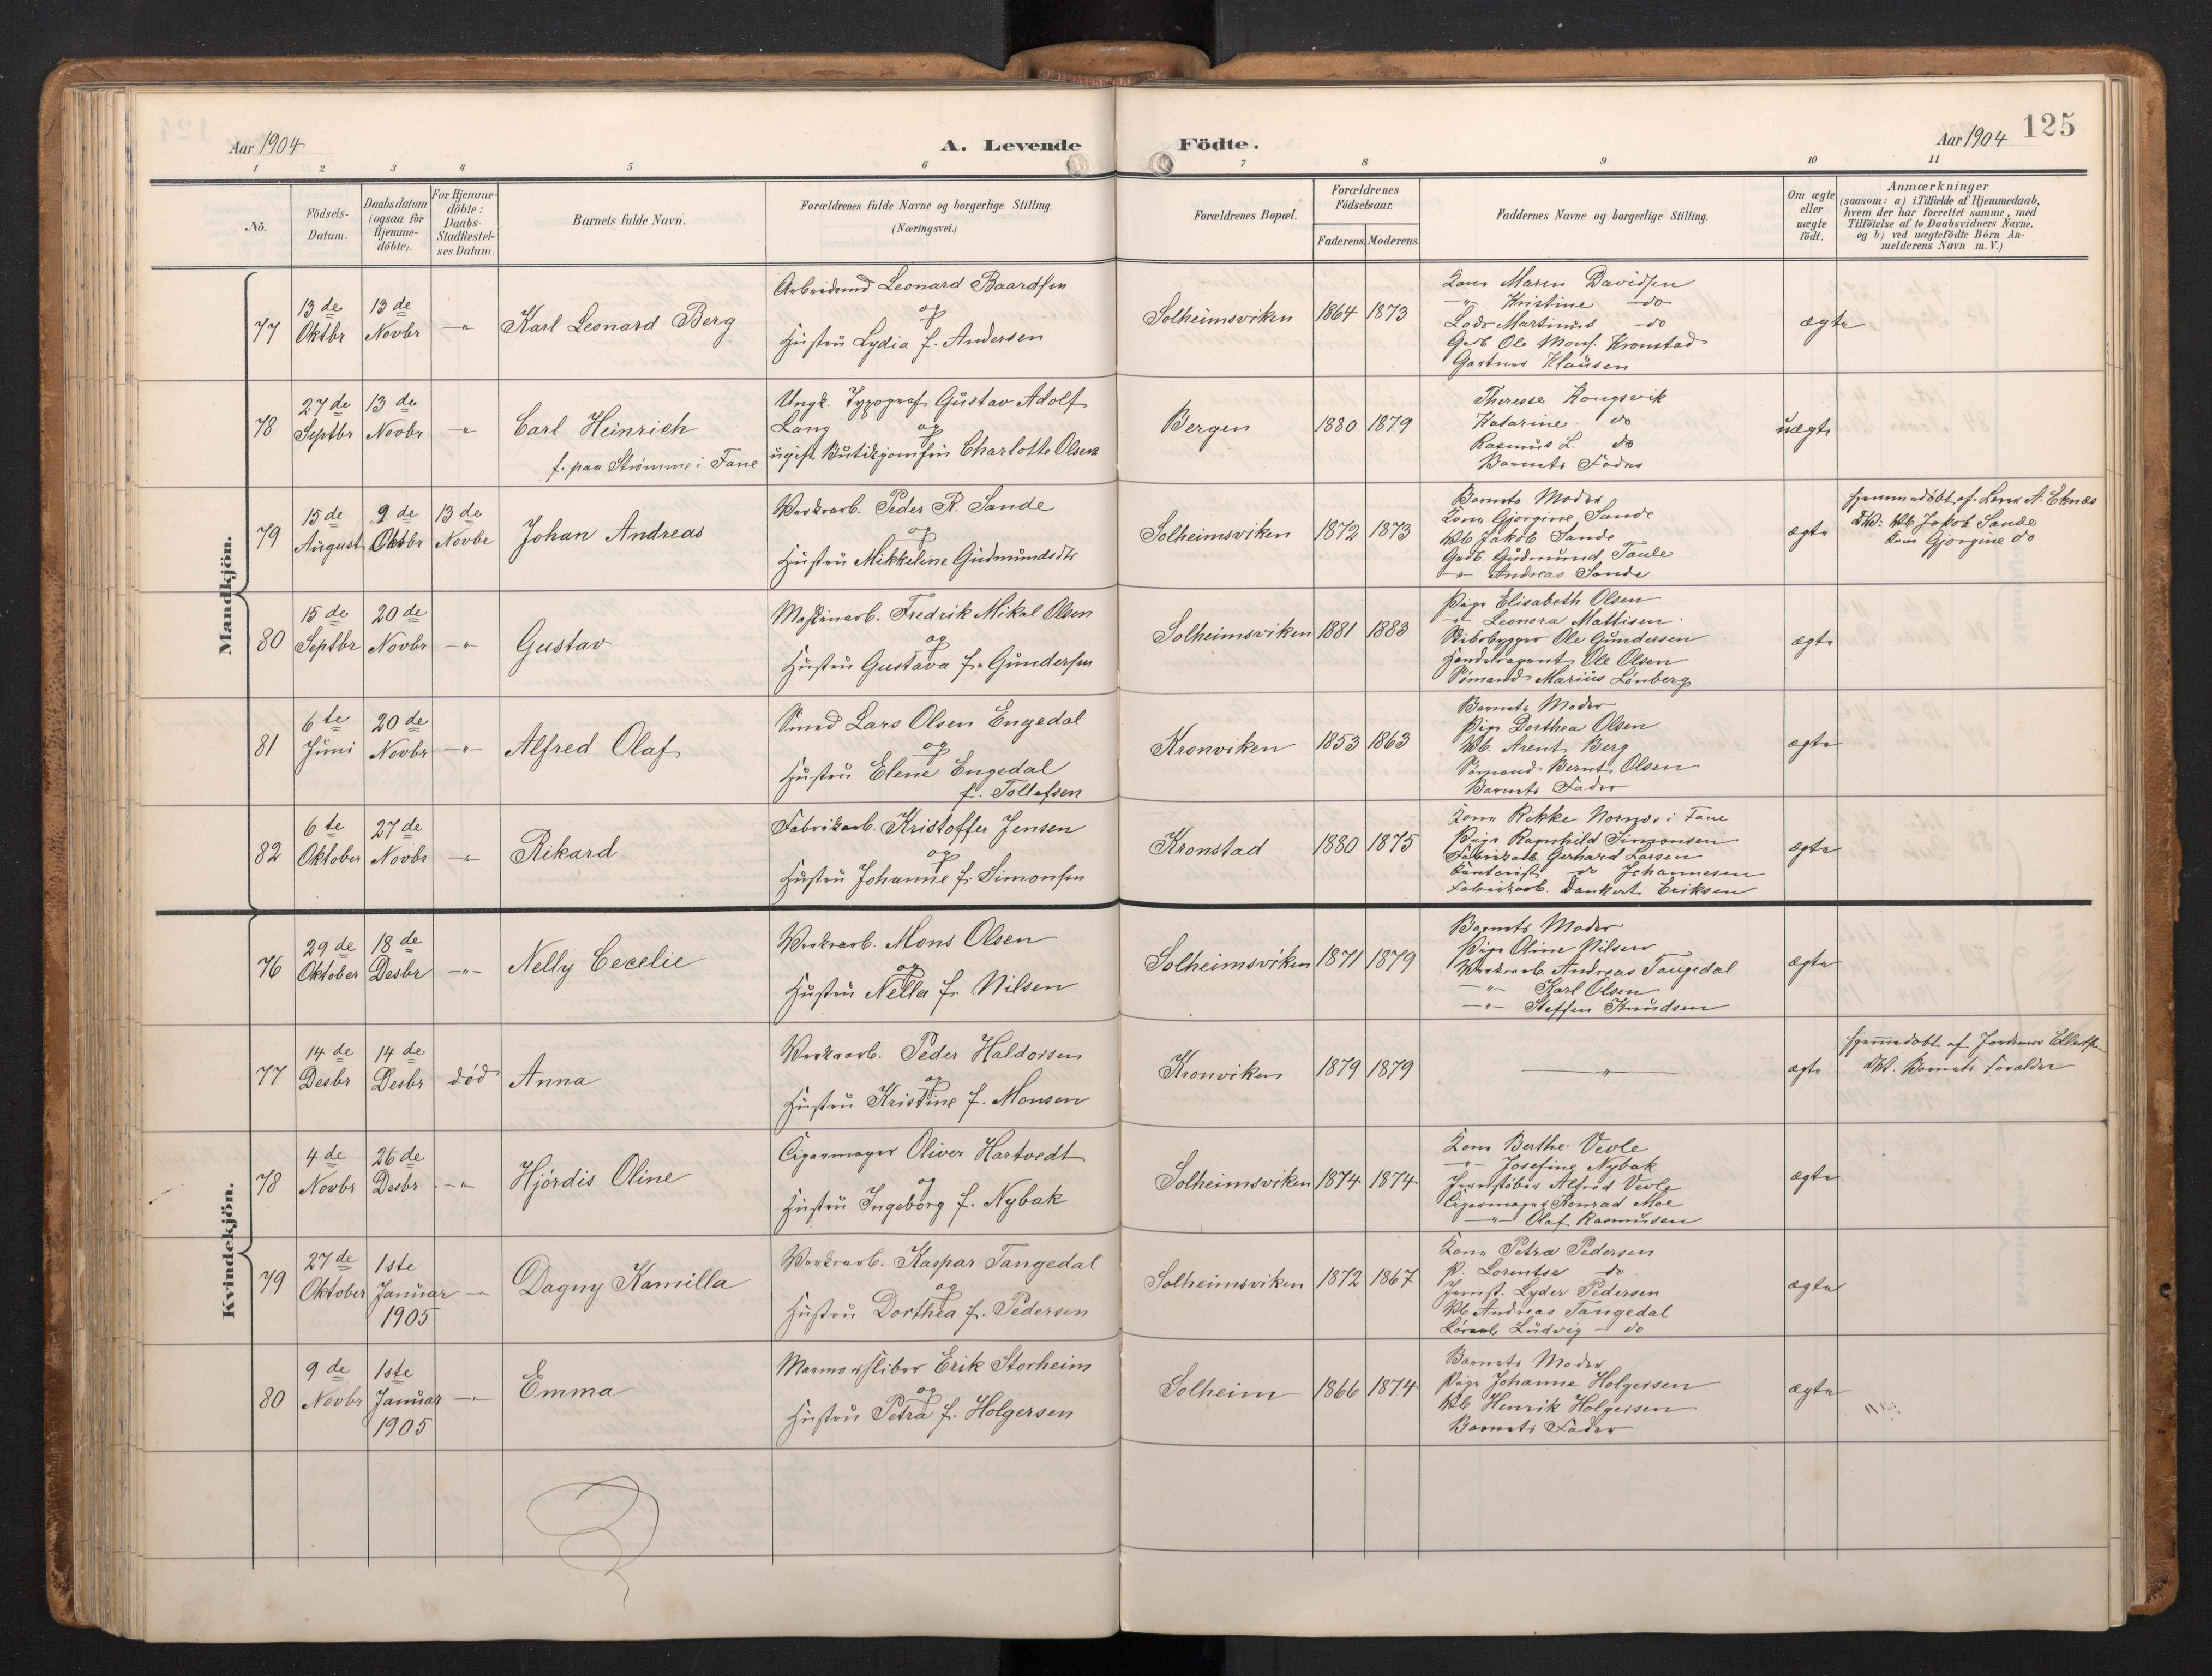 Aar 1904
A. Levende
Födte.
Aar 1904
125
1 2 3 4 5 6 7 8 9 10 11
No.
Födsels-
Datum.
Daabsdatum
(ogsaa for
Hjemme-
döbte).
For Hjemme-
döbte:
Daabs-
Stadfæstel-
ses Datum.
Barnets fulde Navn.
Forældrenes fulde Navne og borgerlige Stilling.
(Næringsvei.)
Forældrenes Bopæl.
Forældrenes
Födselsaar.
Faderens. Moderens.
Faddernes Navne og borgerlige Stilling.
Om ægte
eller
uægte
födt.
Anmærkninger
(saasom: a) i Tilfælde af Hjemmedaab,
hvem der har forrettet samme, med
Tilföielse af to Daabsvidners Navne,
og b) ved uægtefödte Börn An-
melderens Navn m.V.)
Mandkjön.
77
13de
Oktbr
13de
Novbr
-"-
Karl Leonard Berg
Arbeidsmd Leonard Baardsen
og
Hustru Lydia f. Andersen
Solheimsviken
1864 1873
Kone Maren Davidsen
-"- Kristine do
Lods Martinus do
Gutb Ole Mons. Kronstad
Gartner Klausen
ægte
78
27de
Septbr
13de
Novbr
-"-
Carl Heinrich
f. paa Strømme i Fane
Ungk. Typograf Gustav Adolf
Lang og
ugift Butikjomfru Charlotte Olsen
Bergen
1880 1879
Therese Kongsvik
Katarine do
Rasmus L. do
Barnets Fader
uægte
79
15de
August
9de
Oktbr
13de
Novbr
Johan Andreas
Verksarb. Peder R. Sande
og
Hustru Mikkeline Gudmundsdtr
Solheimsviken
1872 1873
Barnets Moder
Kone Gjørgine Sande
Vb Jakob Sande
Gutb. Gudmund Taule
-"- Andreas Sande
ægte
Hjemmedøbt af Lærer A. Eknæs
DV: Vb Jakob Sande
Kone Gjørgine do
80
15de
Septbr
20de
Novbr
-"-
Gustav
Maskinarb. Fredrik Mikal Olsen
og
Hustru Gustava f. Gundersen
Solheimsviken
1881 1883
Pige Elisabeth Olsen
-"- Leonora Mattisen
Skibsbygger Ole Gundersen
Handelsagent Ole Olsen
Sømand Marius Lønberg
ægte
81
6te
Juni
20de
Novbr
-"-
Alfred Olaf
Smed Lars Olsen Engedal
og
Hustru Elene Engedal
f. Tollefsen
Kronviken
1853 1863
Barnets Moder
Pige Dorthea Olsen
Vb. Arent Berg
Sømand Bernt Olsen
Barnets Fader
ægte
82
6te
Oktober
27de
Novbr
-"-
Rikard
Fabrikarb. Kristoffer Jensen
og
Hustru Johanne f. Simonsen
Kronstad
1880 1875
Kone Rikke Nornes i Fane
Pige Ragnhild Simonsen
Fabrikarb. Gerhard Larsen
Kontorist do Johannesen
Fabrikarb. Dankert Eriksen
ægte
Kvindekjön.
76
29de
Oktober
18de
Desbr
-"-
Nelly Cecelie
Verksarb. Mons Olsen
og
Hustru Nella f. Nilsen
Solheimsviken
1871 1879
Barnets Moder
Pige Oline Nilsen
Verksarb. Andreas Tangedal
-"- Karl Olsen
-"- Steffen Knudsen
ægte
77
14de
Desbr
14de
Desbr
død
Anna
Verksarb. Peder Haldorsen
og
Hustru Kristine f. Monsen
Kronviken
1879 1879
-"-
ægte
Hjemmedøbt af Jordemor Ellertsen
DV. Barnets Forældre
78
4de
Novbr
26de
Desbr
-"-
Hjørdis Oline
Cigarmager Oliver Hartvedt
og
Hustru Ingeborg f. Nybak
Solheimsviken
1874 1874
Kone Berthe Vevle
-"- Josefine Nybak
Jernstøber Alfred Vevle
Cigarmager Konrad Moe
-"- Olaf Rasmussen
ægte
79
27de
Oktober
1ste
Januar
1905
-"-
Dagny Kamilla
Verksarb. Kaspar Tangedal
og
Hustru Dorthea f. Pedersen
Solheimsviken
1872 1867
Kone Petra Pedersen
P. Lorentse do
Jernst. Lyder Pedersen
Vb Andreas Tangedal
Ludvig do
ægte
80
9de
Novbr
1ste
Januar
1905
-"-
Emma
Marmorsliber Erik Storheim
og
Hustru Petra f. Holgersen
Solheim
1866 1874
Barnets Moder
Pige Johanne Holgersen
Vb Henrik Holgersen
Barnets Fader
ægte